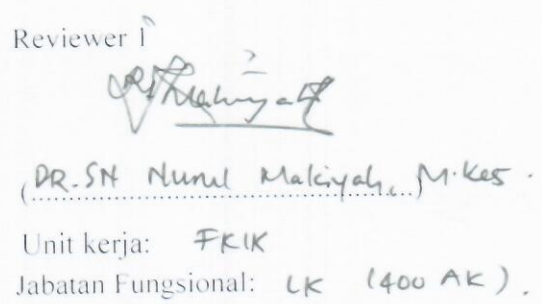 Reviewer 1
(DR. SN Nurul Makiyah, M.Kes.
Unit kerja: FKIK
Jabatan Fungsional: LK (400 AK).